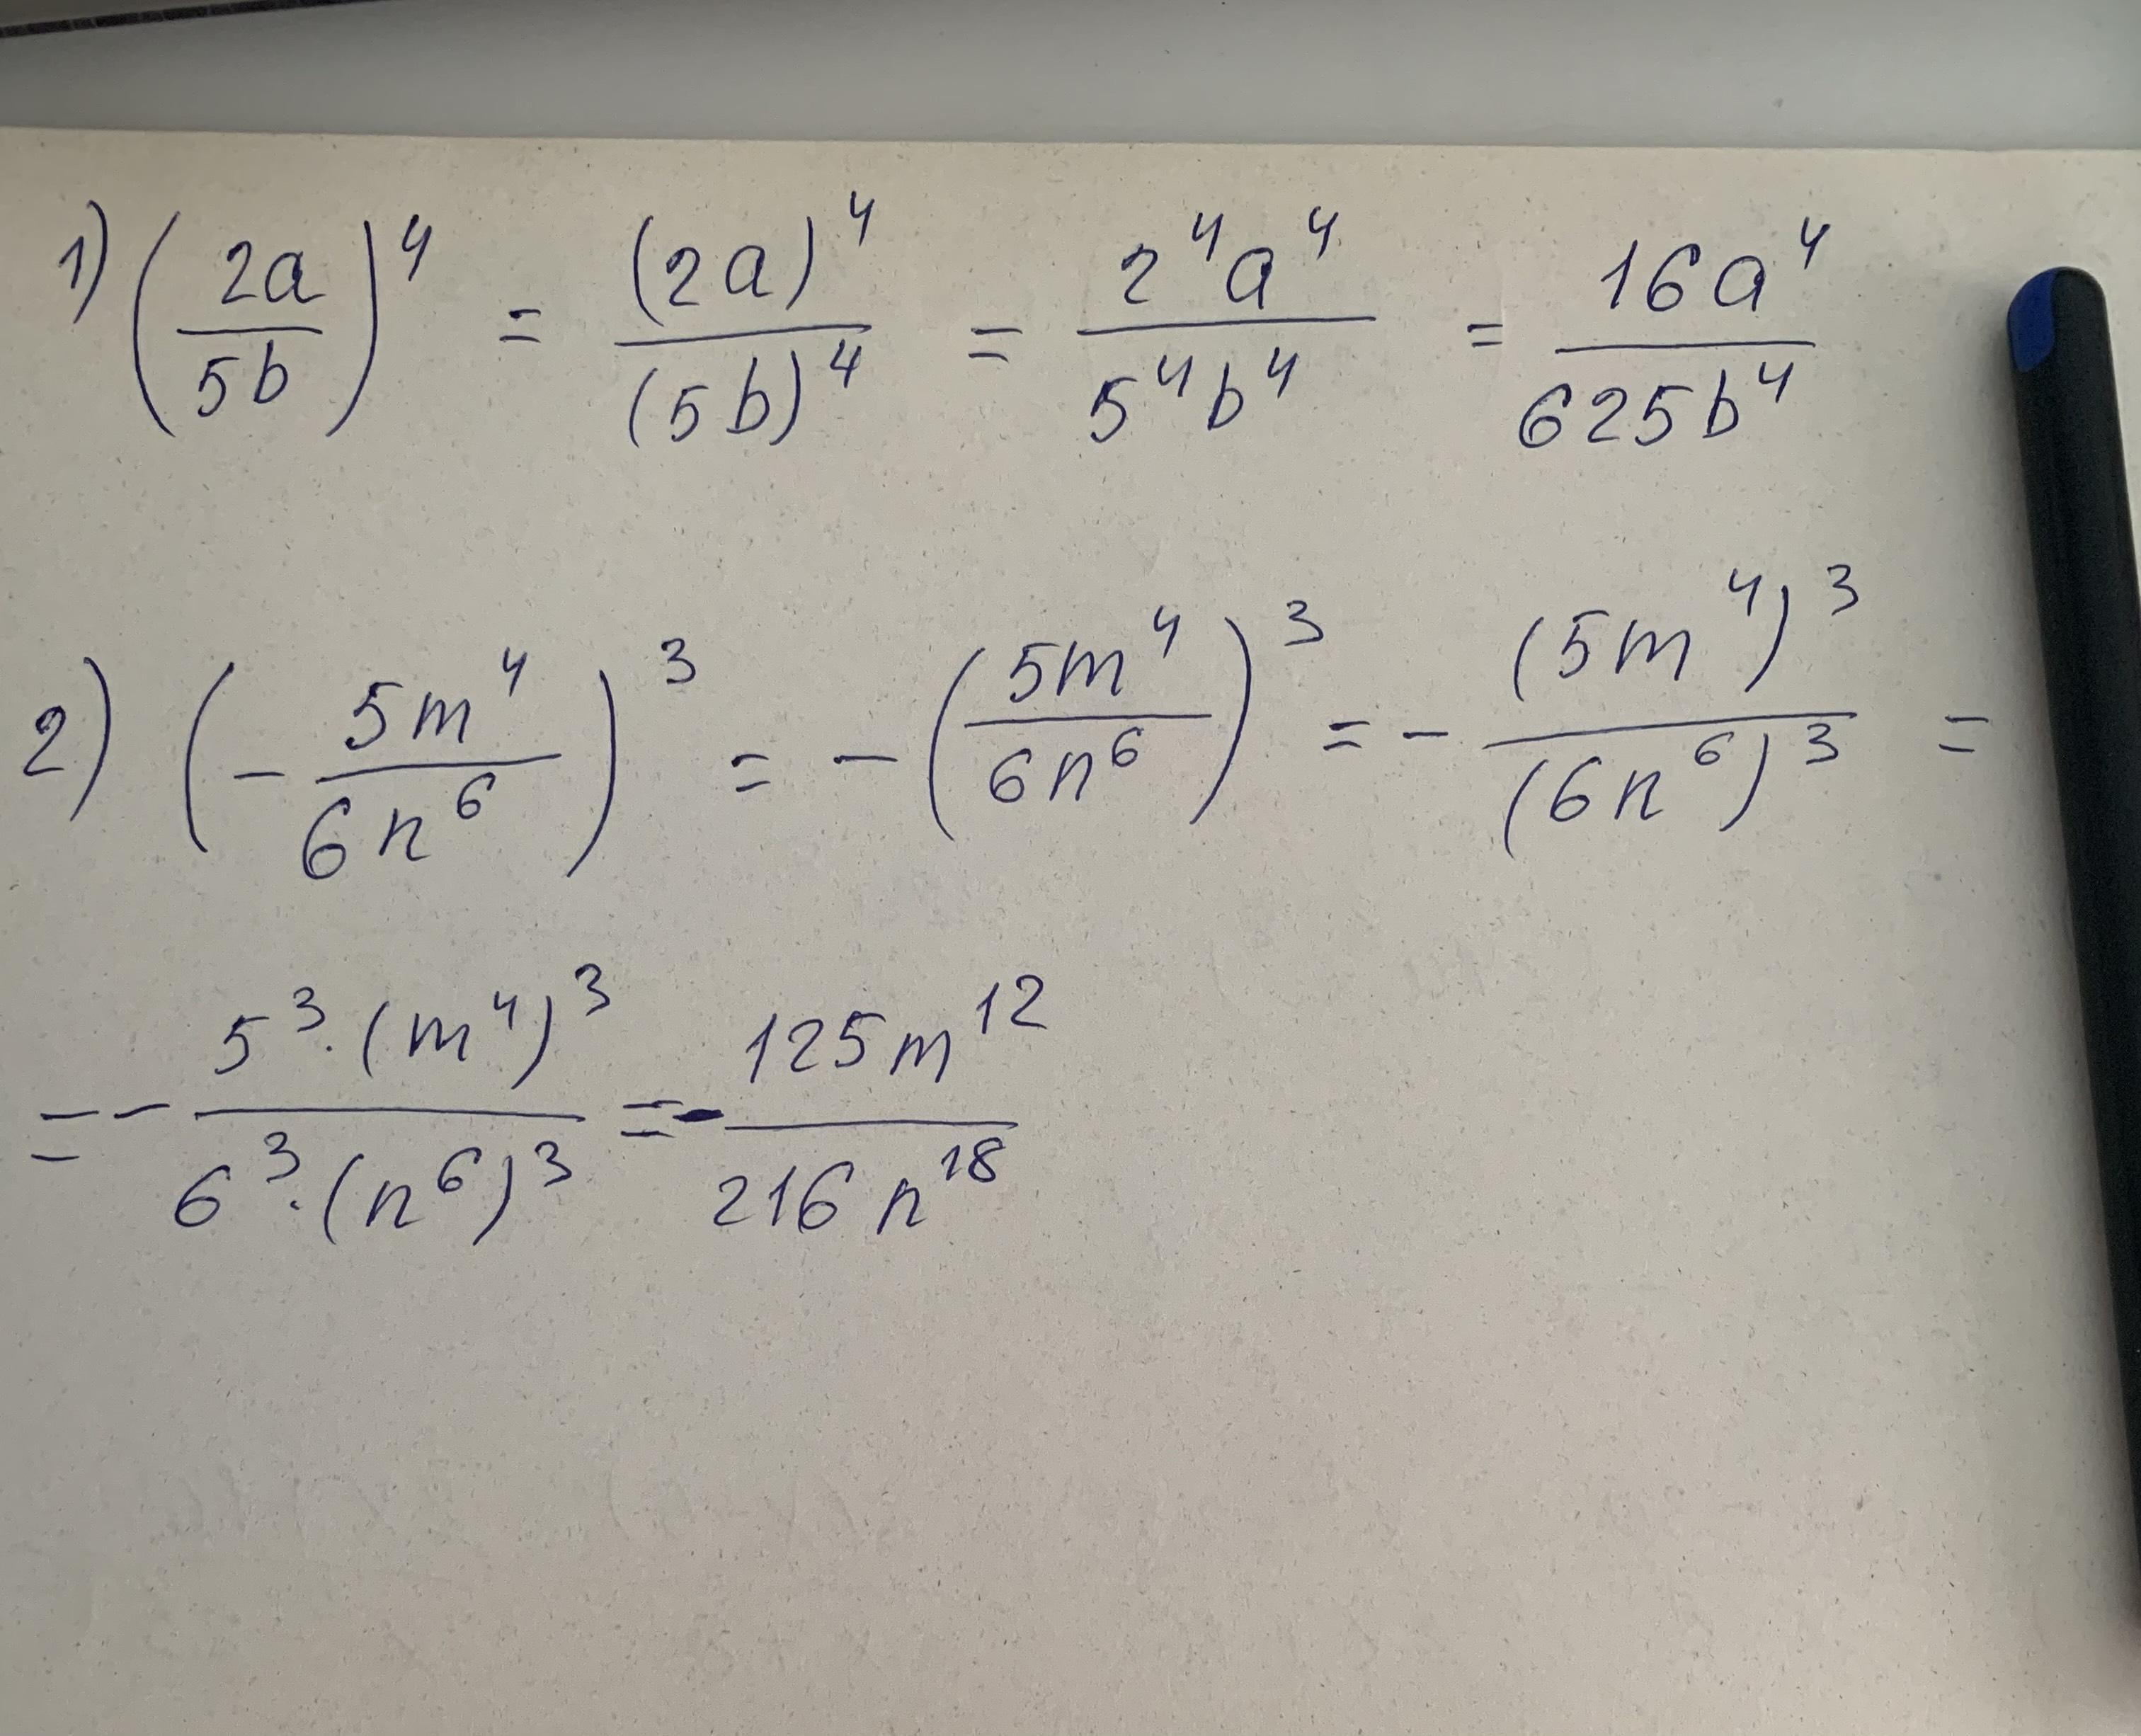 1) (2a/5b)⁴ = (2a)⁴/(5b)⁴ = 2⁴a⁴/5⁴b⁴ = 16a⁴/625b⁴
2) (-5m⁴/6n⁶)³ = -(5m⁴/6n⁶)³ = -(5m⁴)³/(6n⁶)³ =
= -5³·(m⁴)³/6³·(n⁶)³ = -125m¹²/216n¹⁸